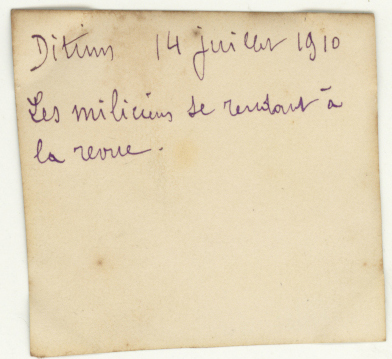 Ditinn 14 juillet 1910
Les miliciens se rendant à
la revue.